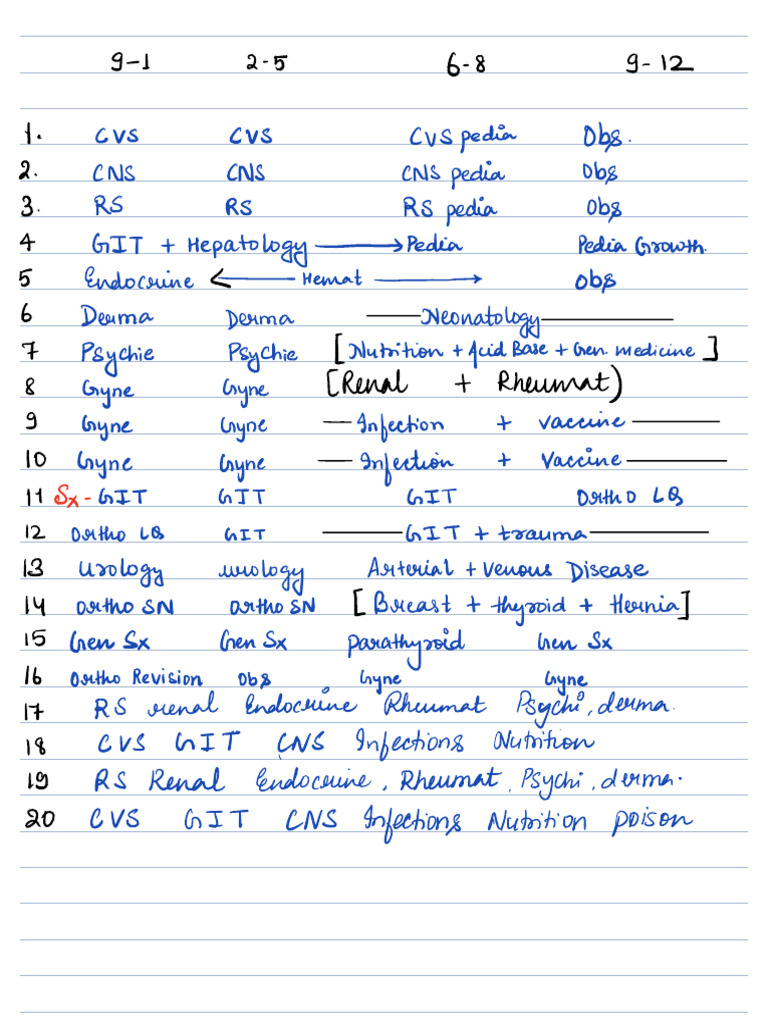 9-1 2-5 6-8 9-12
1. CVS CVS CVS pedia Obs.
2. CNS CNS CNS pedia Obs
3. RS RS RS pedia Obs
4 GIT + Hepatology ⟶ Pedia Pedia Growth.
5 Endocrine ⟵ Hemat ⟶ Obs
6 Derma Derma — Neonatology —
7 Psychie Psychie [Nutrition + Acid Base + Gen. medicine]
8 Gyne Gyne [Renal + Rheumat)
9 Gyne Gyne — Infection + vaccine —
10 Gyne Gyne — Infection + Vaccine —
11 Sx - GIT GIT GIT Ortho LQ
12 Ortho LQ GIT — GIT + trauma —
13 Urology urology Arterial + Venous Disease
14 Ortho SN Ortho SN [Breast + thyroid + Hernia]
15 Gen Sx Gen Sx parathyroid Gen Sx
16 Ortho Revision Obs Gyne Gyne
17 RS renal Endocrine Rheumat Psychi, derma.
18 CVS GIT CNS Infections Nutrition
19 RS Renal Endocrine, Rheumat, Psychi, derma.
20 CVS GIT CNS Infections Nutrition poison